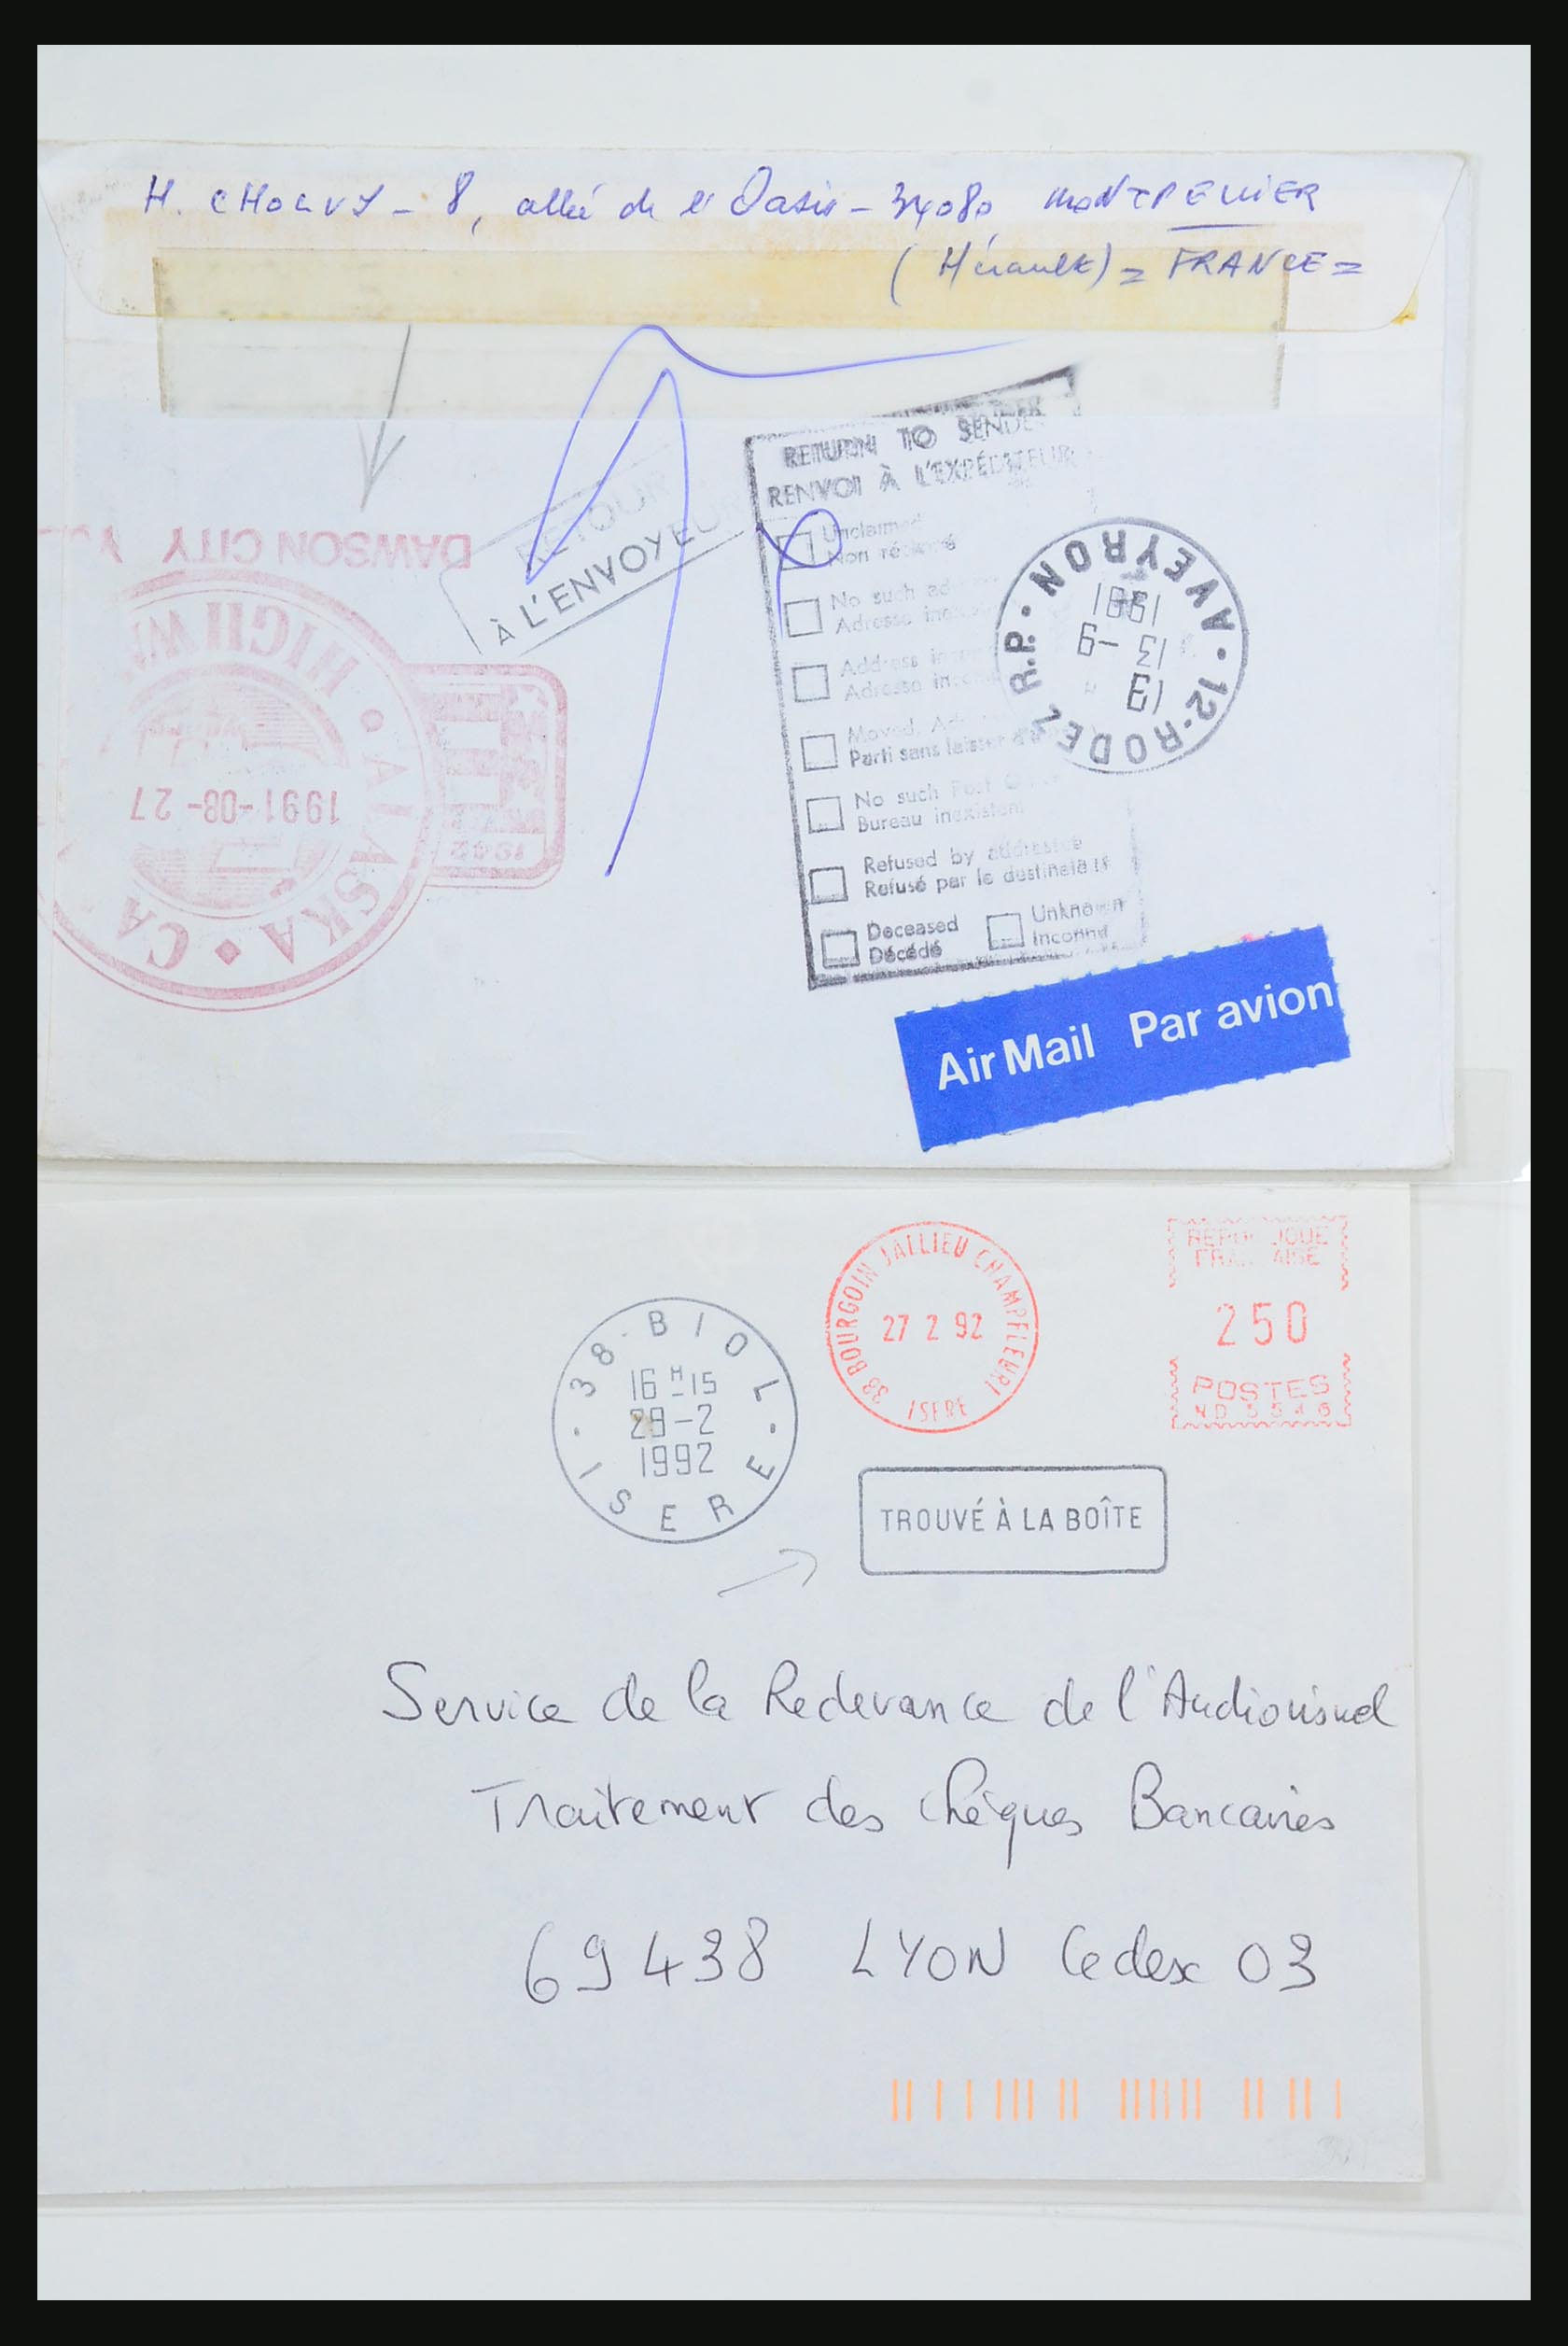 H. CHOLVY - 8, allée de l'Oasis - 34080 MONTPELLIER
(Hérault) = FRANCE =
RETURN TO SENDER
RENVOI À L'EXPÉDITEUR
Unclaimed
Non réclamé
No such
Adresse
Address
Adresse
Moved,
Parti sans laisser
No such Post
Bureau inexistant
Refused by addressee
Refusé par le destinataire
Deceased
Décédé
Unknown
Inconnu
RETOUR
À L'ENVOYEUR
12-RODEZ R.P. • AVEYRON
19
13 -9
1991
DAWSON CITY
HIGHWAY • ALASKA • CA
1991-08-27
1992
Air Mail Par avion
38 BOURGOIN JALLIEU CHAMPFLEURI
27 2 92
ISERE
REPUBLIQUE
FRANCAISE
250
POSTES
38 - BIOL
16 H 15
29-2
1992
ISERE
TROUVÉ À LA BOÎTE
Service de la Redevance de l'Audiovisuel
Traitement des chèques Bancaires
69438 LYON Cedex 03